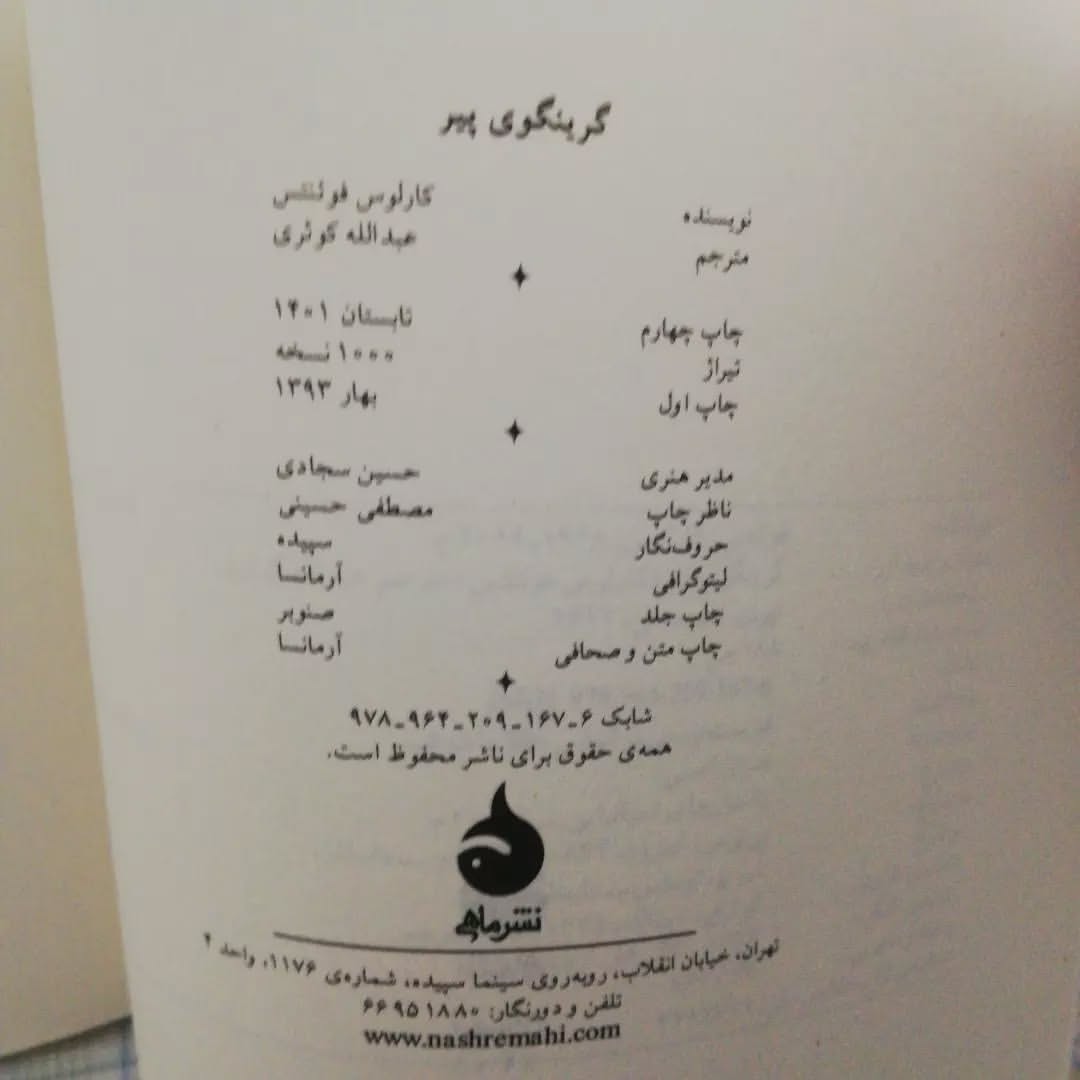 گرینگوی پیر
نویسنده کارلوس فوئنتس
مترجم عبدالله کوثری
چاپ چهارم تابستان ۱۴۰۱
تیراژ ۱۰۰۰ نسخه
چاپ اول بهار ۱۳۹۳
مدیر هنری حسین سجادی
ناظر چاپ مصطفی حسینی
حروف‌نگار سپیده
لیتوگرافی آرمانسا
چاپ جلد صنوبر
چاپ متن و صحافی آرمانسا
شابک ۶_۱۶۷_۲۰۹_۹۶۴_۹۷۸
همه‌ی حقوق برای ناشر محفوظ است.
نشرماهی
تهران، خیابان انقلاب، روبه‌روی سینما سپیده، شماره‌ی ۱۱۷۶، واحد ۴
تلفن و دورنگار: ۶۶۹۵۱۸۸۰
www.nashremahi.com